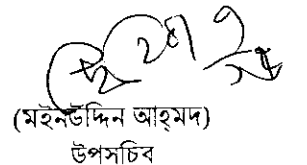 (মইনউদ্দিন আহ্‌মদ)
উপসচিব